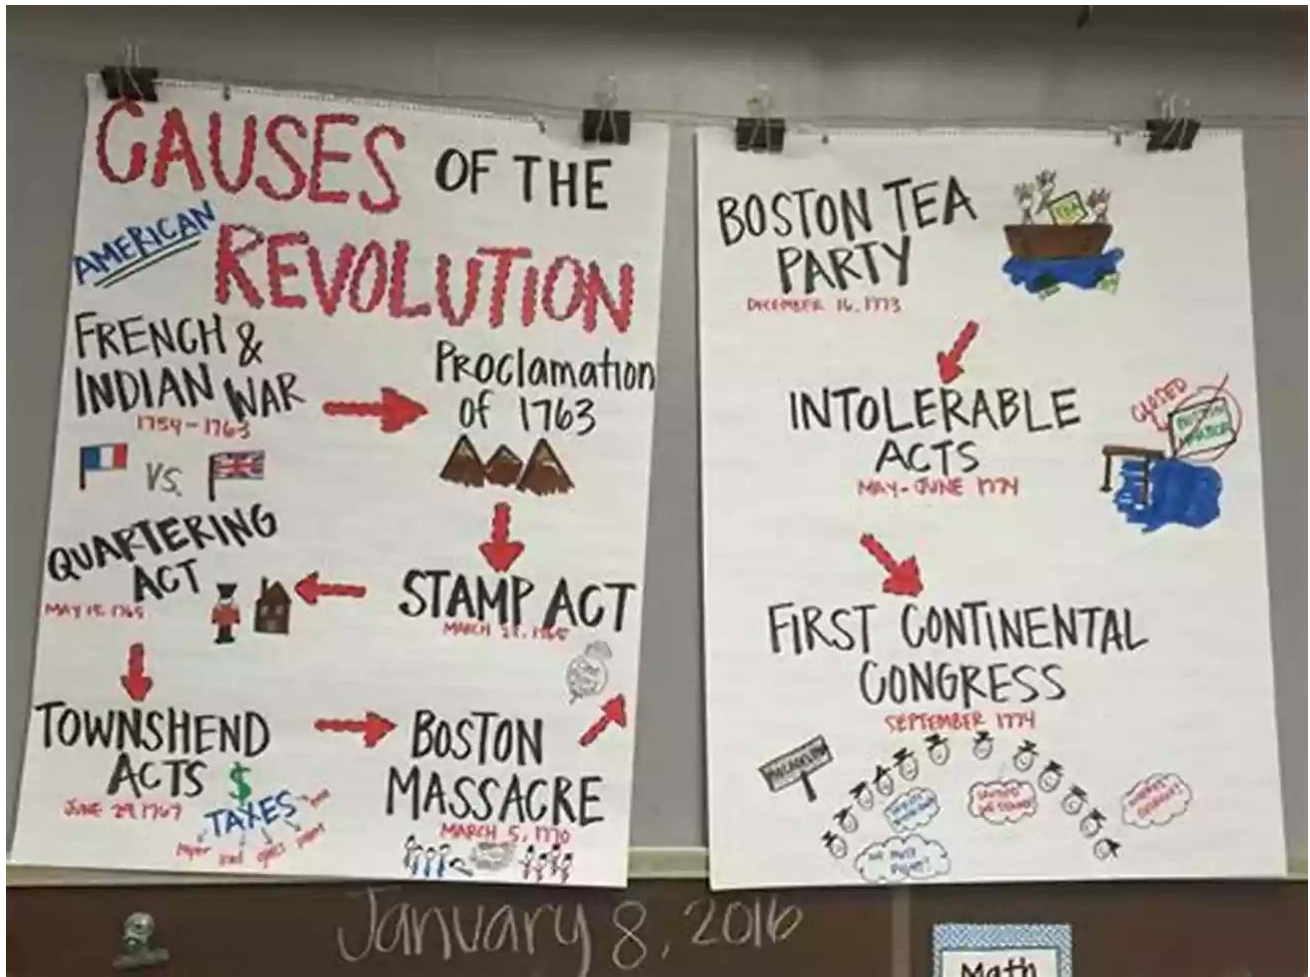 CAUSES OF THE
AMERICAN
REVOLUTION
FRENCH &
INDIAN WAR
1754-1763
VS.
Proclamation
of 1763
STAMP ACT
MARCH
QUARTERING
ACT
MAY 15, 1765
TOWNSHEND
ACTS $
JUNE 29, 1767
TAXES
paper lead
paint
BOSTON
MASSACRE
MARCH 5, 1770
BOSTON TEA
PARTY
DECEMBER 16, 1773
TEA
INTOLERABLE
ACTS
MAY-JUNE 1774
CLOSED
BOSTON
HARBOR
FIRST CONTINENTAL
CONGRESS
SEPTEMBER 1774
January 8, 2016
Math